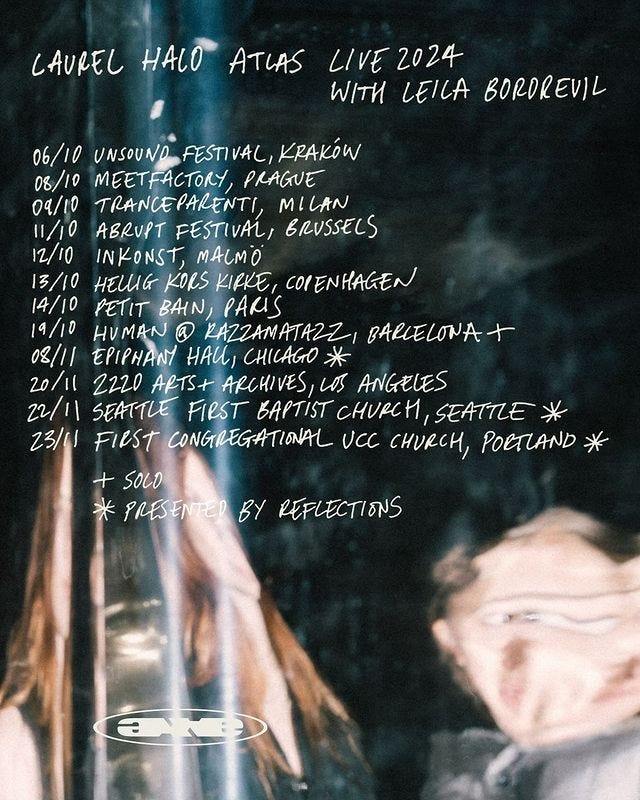 LAUREL HALO ATLAS LIVE 2024
WITH LEILA BORDREUIL
06/10 UNSOUND FESTIVAL, KRAKÓW
08/10 MEETFACTORY, PRAGUE
09/10 TRANCEPARENTI, MILAN
11/10 ABRUPT FESTIVAL, BRUSSELS
12/10 INKONST, MALMÖ
13/10 HELLIG KORS KIRKE, COPENHAGEN
14/10 PETIT BAIN, PARIS
19/10 HUMAN @ RAZZAMATAZZ, BARCELONA +
08/11 EPIPHANY HALL, CHICAGO *
20/11 2220 ARTS + ARCHIVES, LOS ANGELES
22/11 SEATTLE FIRST BAPTIST CHURCH, SEATTLE *
23/11 FIRST CONGREGATIONAL UCC CHURCH, PORTLAND *
+ SOLO
* PRESENTED BY REFLECTIONS